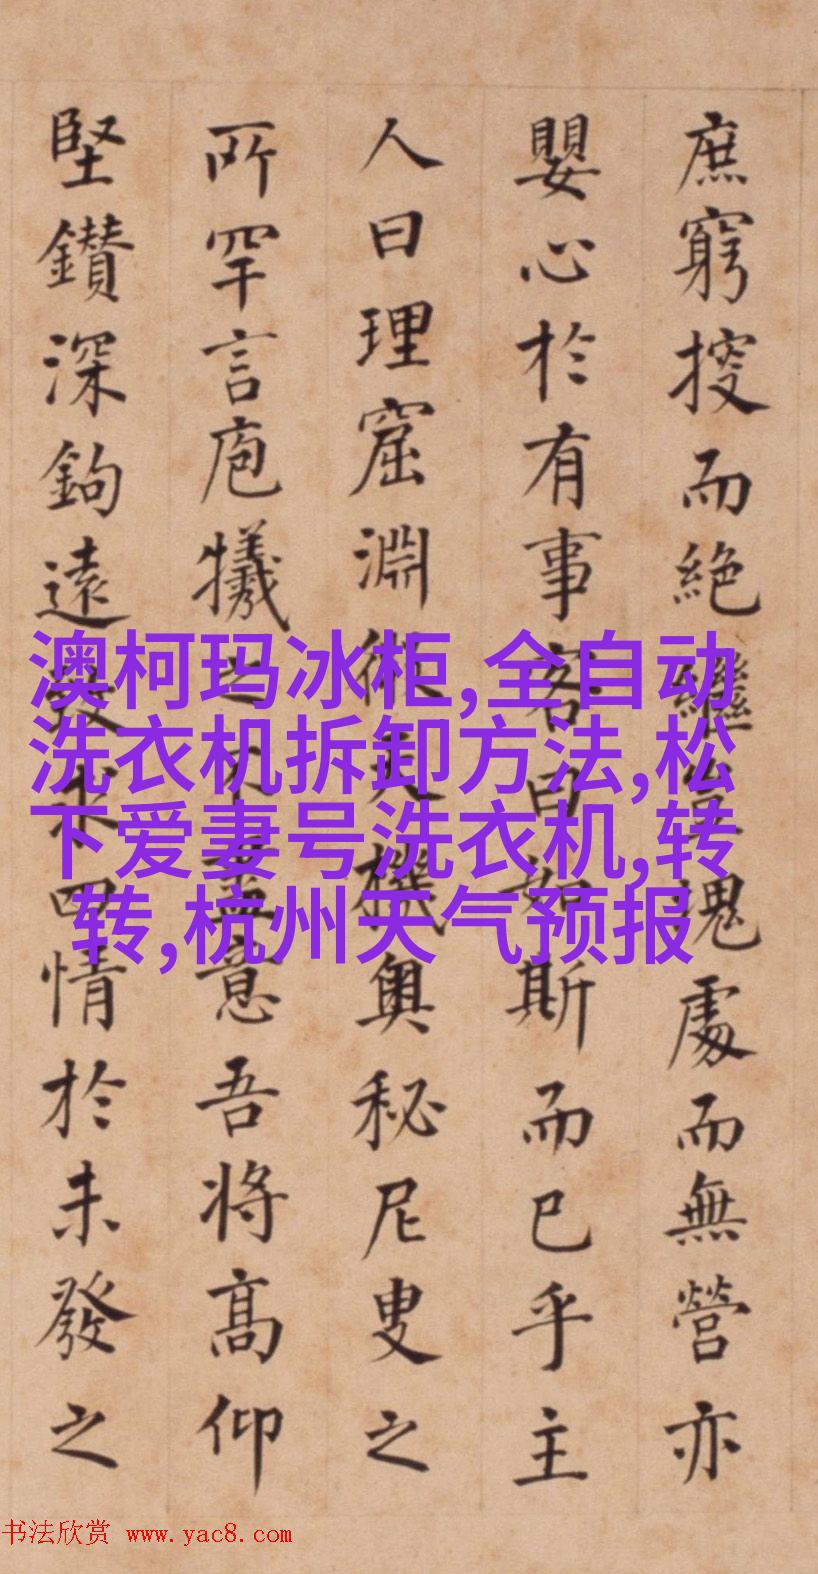 庶窮搜而絶繼塊處而無營亦
嬰心於有事客曰如斯而已乎主
人曰理窟淵天機奥秘尼叟之
所罕言庖犧之不盡意吾将高仰
堅鑚深鉤遠致求四情於未發之
澳柯玛冰柜,全自动
洗衣机拆卸方法,松
下爱妻号洗衣机,转
转,杭州天气预报
书法欣赏 www.yac8.com